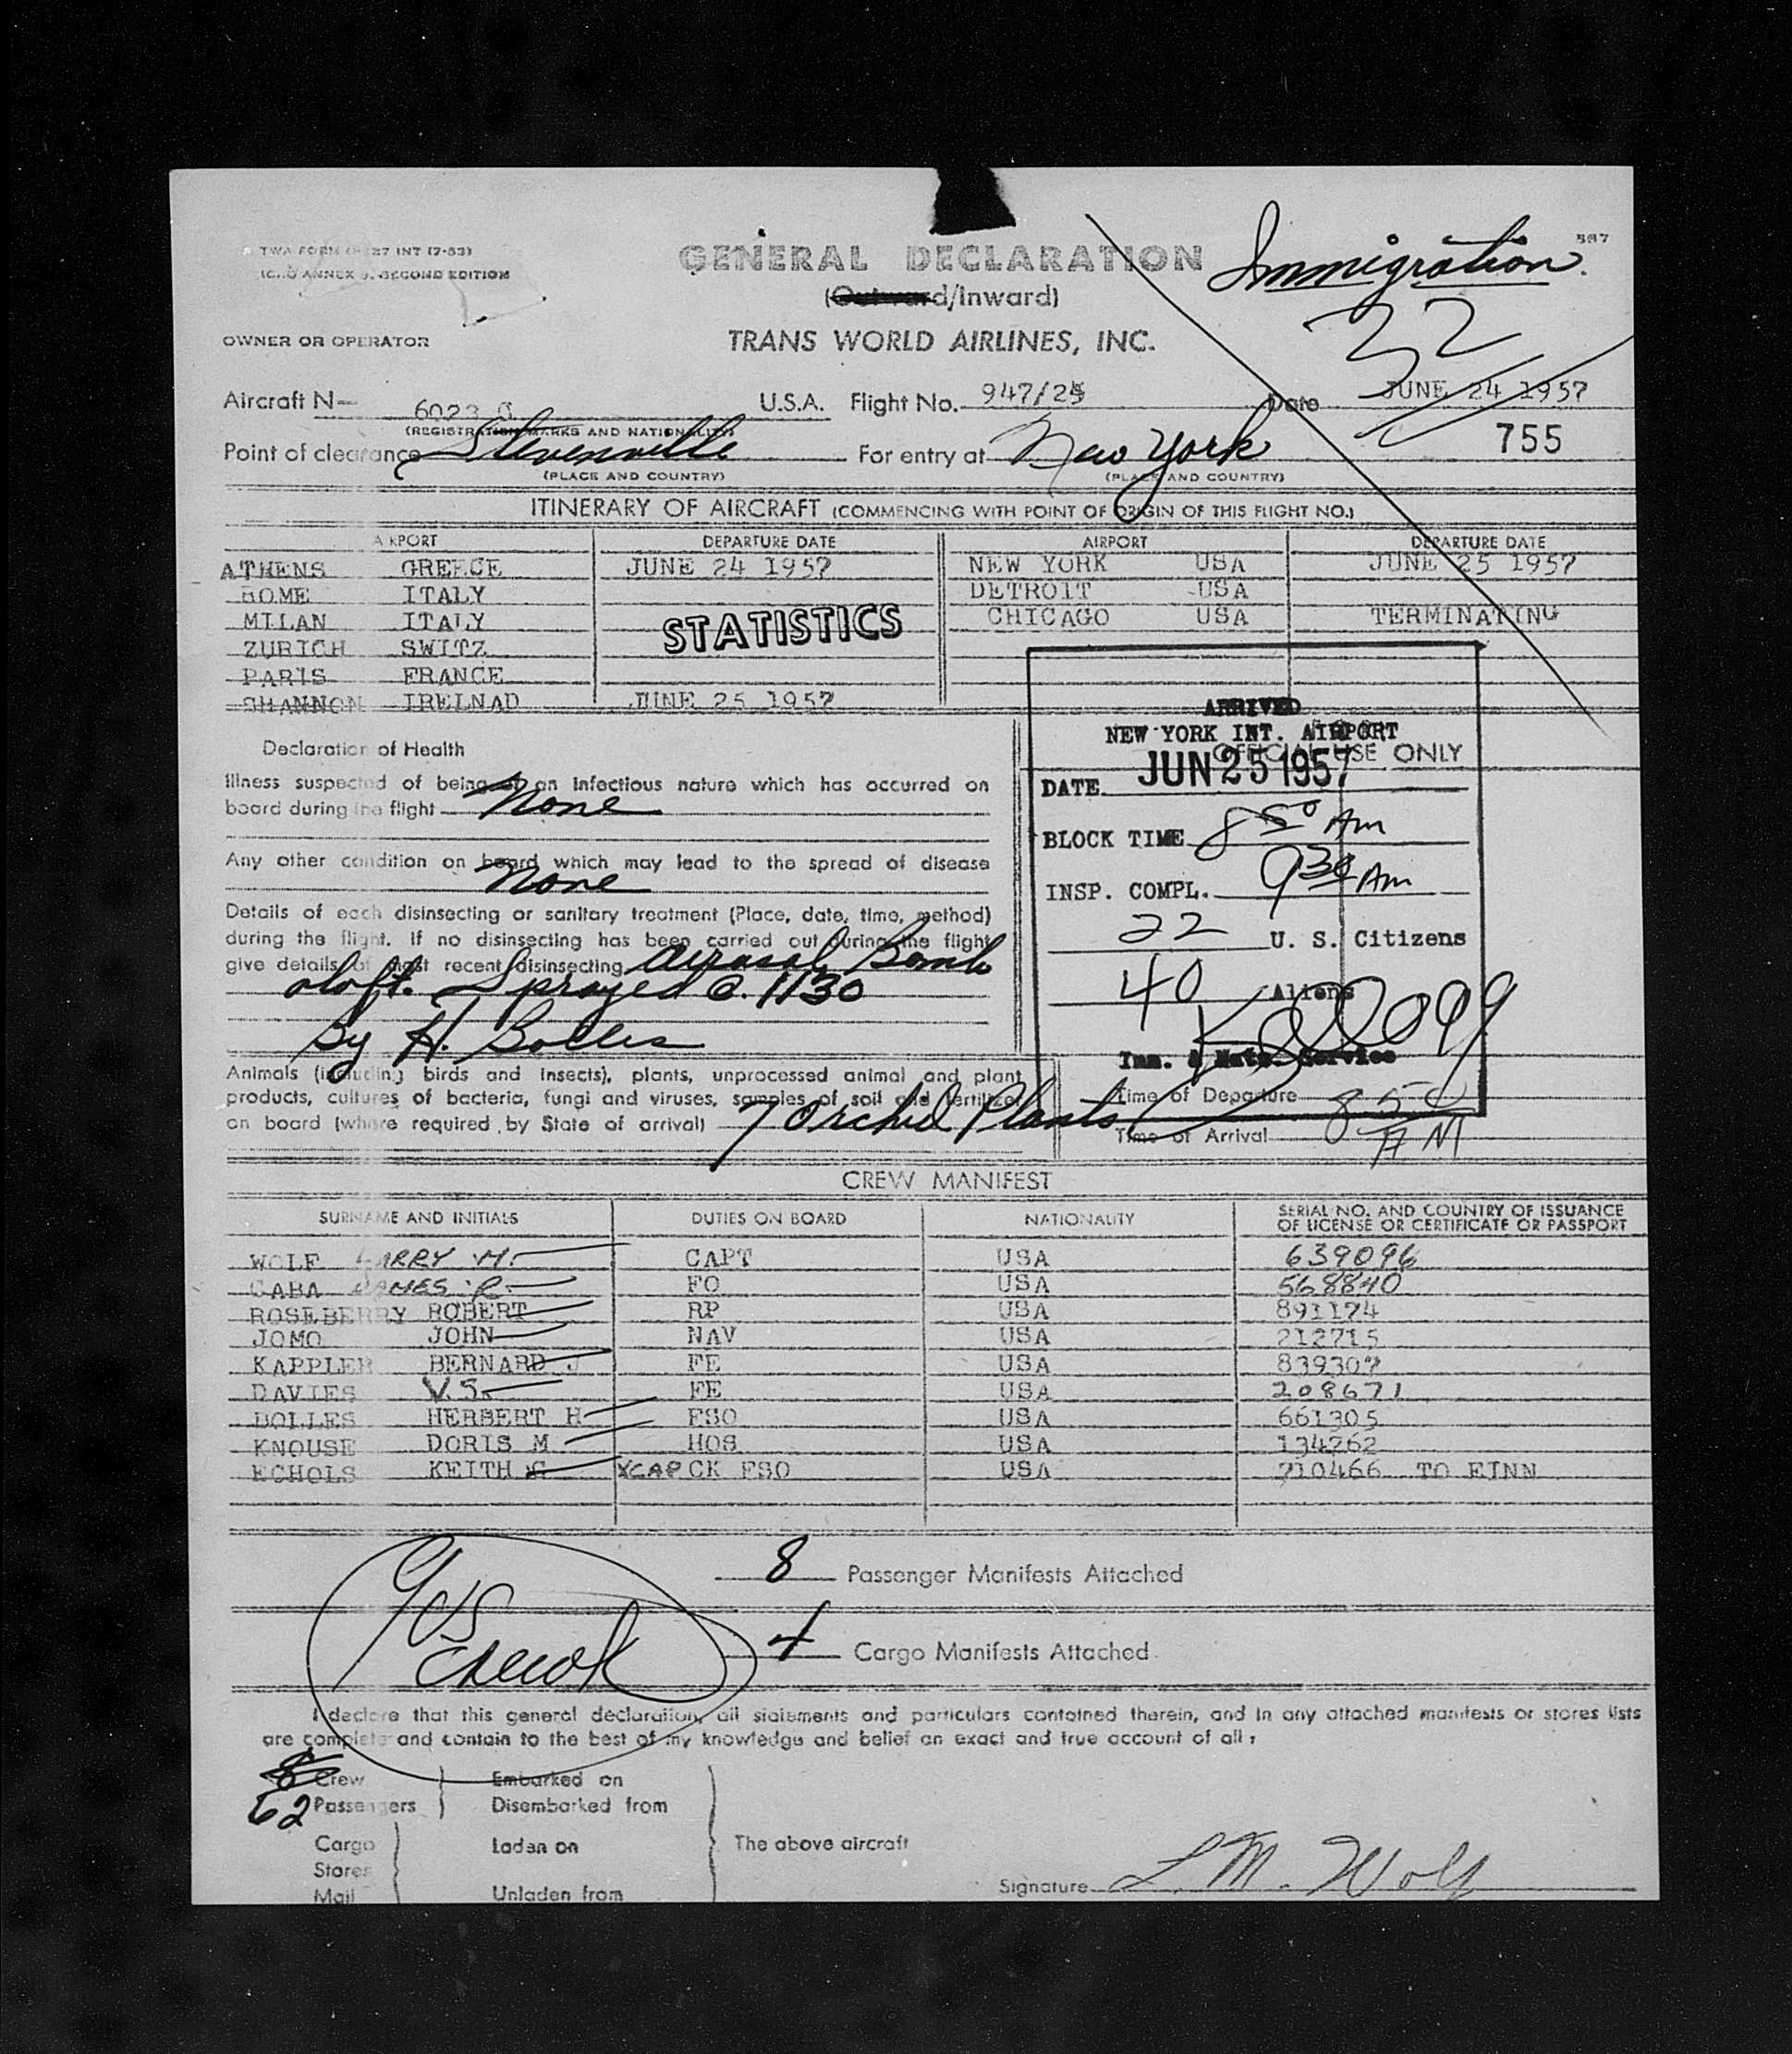 TWA FORM INT (7-53)
ANNEX 9, SECOND EDITION
GENERAL DECLARATION
Immigration.
(Outward/Inward)
32
OWNER OR OPERATOR
TRANS WORLD AIRLINES, INC.
Aircraft N— 6023 C U.S.A. Flight No. 947/25 Date JUNE 24 1957
(REGISTRATION MARKS AND NATIONALITY)
755
Point of clearance Stevenville For entry at New York
(PLACE AND COUNTRY) (PLACE AND COUNTRY)
ITINERARY OF AIRCRAFT (COMMENCING WITH POINT OF ORIGIN OF THIS FLIGHT NO.)
AIRPORT DEPARTURE DATE AIRPORT DEPARTURE DATE
ATHENS GREECE JUNE 24 1957 NEW YORK USA JUNE 25 1957
ROME ITALY DETROIT USA
MILAN ITALY CHICAGO USA TERMINATING
STATISTICS
ZURICH SWITZ
PARIS FRANCE
SHANNON IRELNAD JUNE 25 1957
Declaration of Health
Illness suspected of being of an infectious nature which has occurred on
board during the flight None
Any other condition on board which may lead to the spread of disease
None
Details of each disinsecting or sanitary treatment (Place, date, time, method)
during the flight. If no disinsecting has been carried out during the flight
give details of most recent disinsecting Airasol Bomb
aloft. Sprayed @ 1130
By H. Bolles
Animals (including birds and insects), plants, unprocessed animal and plant
products, cultures of bacteria, fungi and viruses, samples of soil and fertilizer
on board (where required by State of arrival) 7 Orchid Plants
ARRIVED
NEW YORK INT. AIRPORT
OFFICIAL USE ONLY
DATE JUN 25 1957
BLOCK TIME 8 50 Am
INSP. COMPL. 9 30 Am
22 U. S. Citizens
40 Aliens
Kellogg
Imm. & Natz. Service
Time of Departure
Time of Arrival 8 50 AM
CREW MANIFEST
SURNAME AND INITIALS DUTIES ON BOARD NATIONALITY SERIAL NO. AND COUNTRY OF ISSUANCE
OF LICENSE OR CERTIFICATE OR PASSPORT
WOLF LARRY M. CAPT USA 639096
CABA JAMES R. FO USA 568840
ROSEBERRY ROBERT RP USA 891174
JOMO JOHN NAV USA 212715
KAPPLER BERNARD J FE USA 839307
DAVIES V.S. FE USA 208671
BOLLES HERBERT H FSO USA 661305
KNOUSE DORIS M HOS USA 134262
ECHOLS KEITH G XCAP CK FSO USA 710466 TO EINN
8 Passenger Manifests Attached
4 Cargo Manifests Attached
I declare that this general declaration, all statements and particulars contained therein, and in any attached manifests or stores lists
are complete and contain to the best of my knowledge and belief an exact and true account of all:
8 Crew Embarked on
62 Passengers Disembarked from
Cargo Laden on The above aircraft
Stores
Mail Unladen from
Signature L. M. Wolf